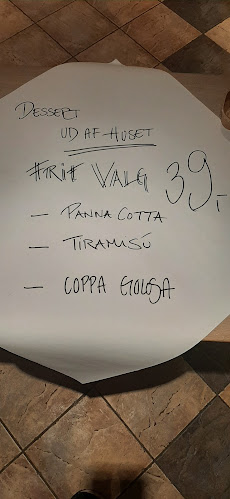 DESSERT
UD AF HUSET
FRIT VALG 39,-
– PANNA COTTA
– TIRAMISÚ
– COPPA GOLOSA